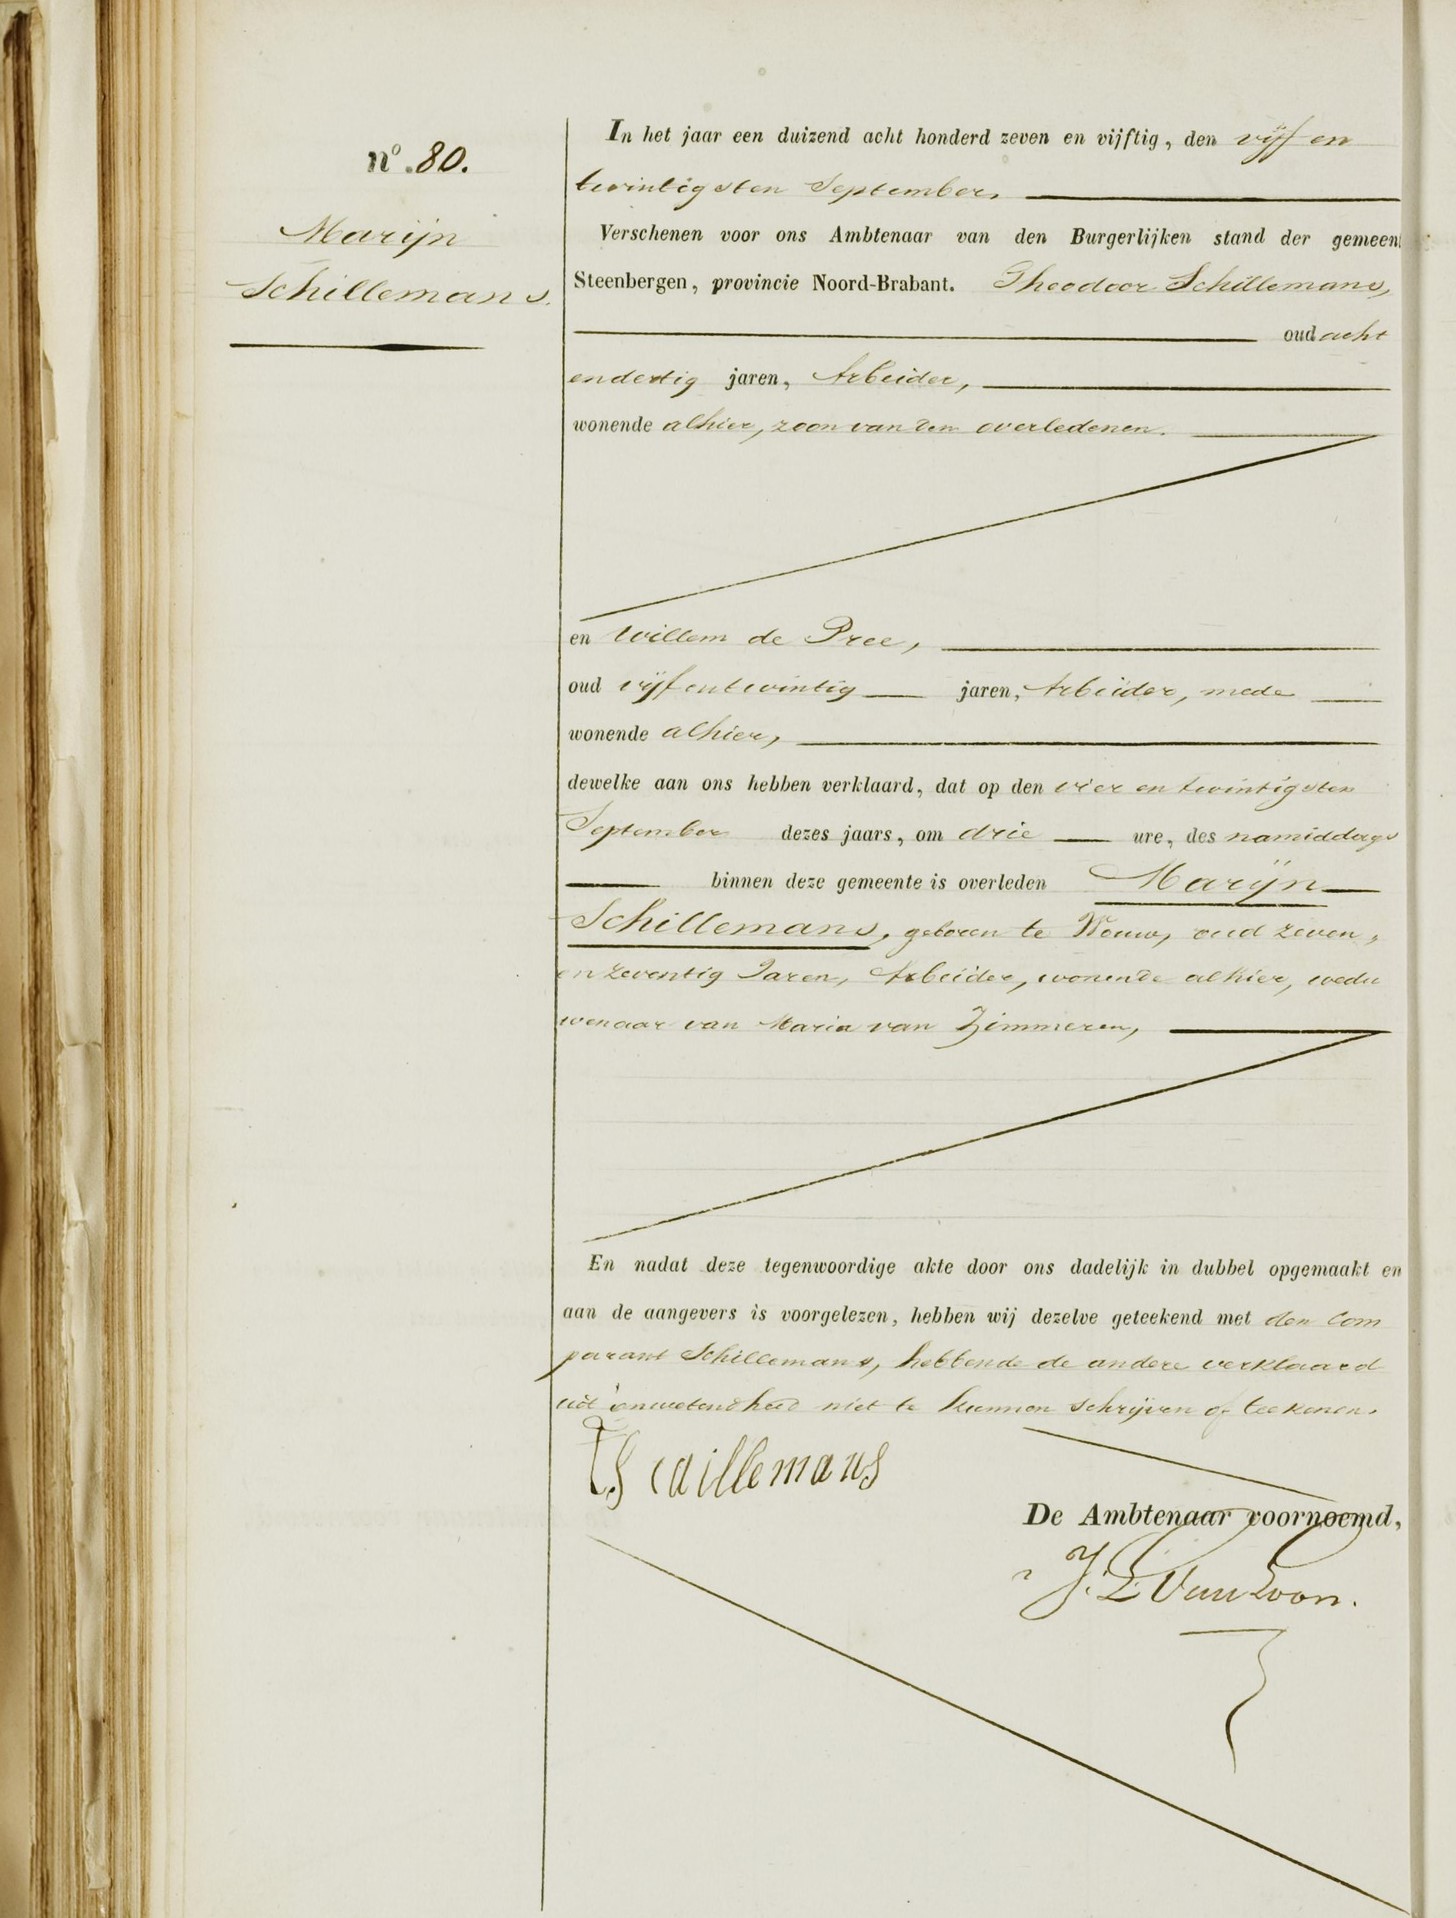 nº. 80.
Marijn
Schillemans.
In het jaar een duizend acht honderd zeven en vijftig, den vijf en
twintigsten September,
Verschenen voor ons Ambtenaar van den Burgerlijken stand der gemeent
Steenbergen, provincie Noord-Brabant. Theodoor Schillemans,
oud acht
endertig jaren, Arbeider,
wonende alhier, zoon van den overledenen.
en Willem de Pree,
oud vijfentwintig jaren, Arbeider, mede
wonende alhier,
dewelke aan ons hebben verklaard, dat op den vier en twintigsten
September dezes jaars, om drie ure, des namiddags
binnen deze gemeente is overleden Marijn
Schillemans, geboren te Wouw, oud zeven,
en zeventig Jaren, Arbeider, wonende alhier, wedu
wenaar van Maria van Zimmeren,
En nadat deze tegenwoordige akte door ons dadelijk in dubbel opgemaakt en
aan de aangevers is voorgelezen, hebben wij dezelve geteekend met den Com
parant Schillemans, hebbende de andere verklaard
uit onwetendheid niet te kunnen schrijven of teekenen.
De Ambtenaar voornoemd,
J. L. Van Loon.